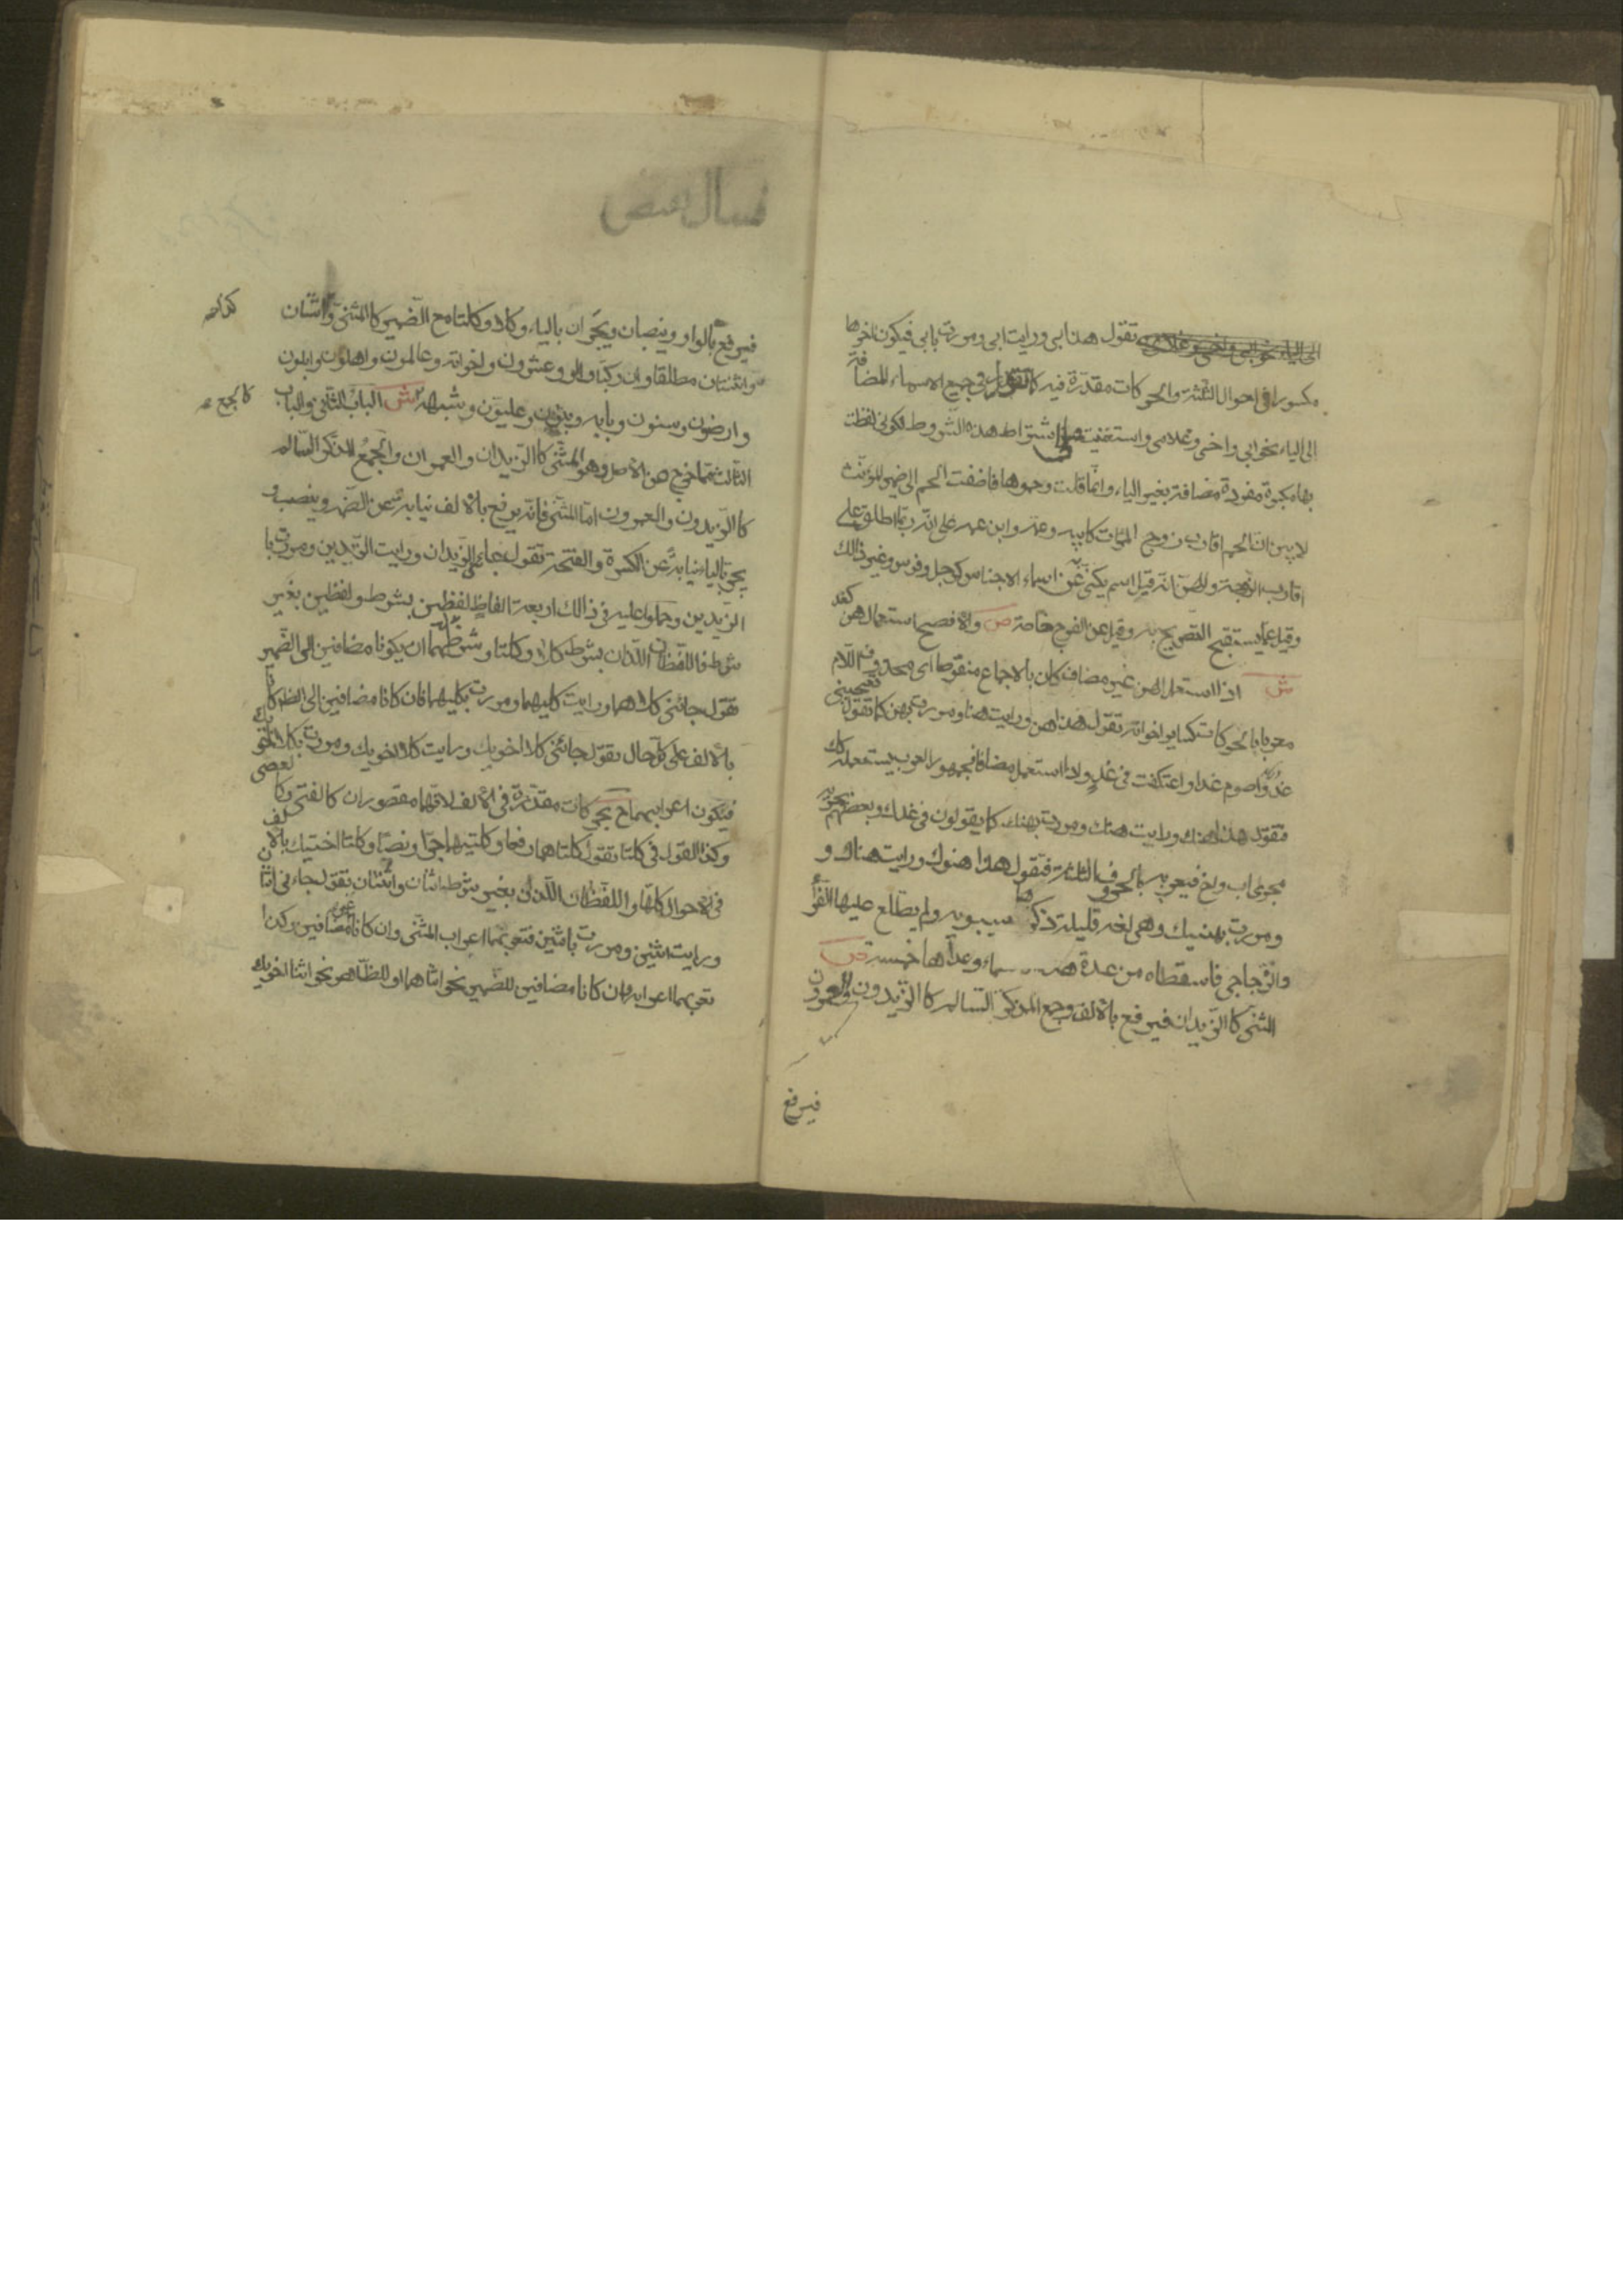 تقول هذا ابى ورايت ابى ومررت بابى فيكون اخرها
مكسورا فى احوال الثلثة والحركات مقدرة فيه كما تقول فى جميع الاسماء المضافة
الى الياء نحو ابى واخى وغلامى واستغنيت اشتراط هذه الشروط لكونى لفظت
بها مكبرة مفردة مضافة بغير الياء وانما قلت وحموها فاضفت الحم الى ضمير المؤنث
لابين ان الحم اقارب زوج المرأت كابيه وعمه وابن عمه على انه ربما اطلق على
اقارب الزوجة والهن انه قيل اسم يكنى به عن اسماء الاجناس كرجل وفرس وغير ذالك
وقيل عما يستقبح التصريح به وقيل عن الفرج خاصة ص والافصح استعمال هن كغد
ش اذا استعمل الهن غير مضاف كان بالاجماع منقوصا اى محذوف اللام
معربا بالحركات كساير اخواته تقول هذا هن ورايت هنا ومررت بهن كما تقول يعجبنى
غد واصوم غدا واعتكفت فى غد واذا استعمل مضافا فجمهور العرب يستعمله كذلك
فتقول هذا هنك ورايت هنك ومررت بهنك كما يقولون فى غدك وبعضهم يجريه
مجرى اب واخ فيعربه بالحروف الثلثة فتقول هذا هنوك ورايت هناك و
ومررت بهنيك وهى لغة قليلة ذكرها سيبويه ولم يطلع عليها الفراء
والزجاجى فاسقطاه من عدة هذه سماء وعداها خمسة ص
المثنى كالزيدان فيرفع بالالف وجمع المذكر السالم كالزيدون والعمرون
فيرفع
فيرفع بالواو وينصبان ويجران بالياء وكلا وكلتا مع الضمير كالمثنى واثنان
واثنتان مطلقا وان ركبا واولو وعشرون واخواته وعالمون واهلون وابلون
وارضون وسنون وبابه وبنون وعليون وشبهه كالجمع ش الباب الثانى والباب
الثالث مما خرج عن الاصل وهو المثنى كالزيدان والعمران والجمع المذكر السالم
كالزيدون والعمرون اما المثنى فانه يرفع بالالف نيابة عن الضمه وينصب و
يجر بالياء نيابة عن الكسرة والفتحة تقول جاء الزيدان ورايت الزيدين ومررت با
الزيدين وحملوا عليه فى ذالك اربعة الفاظ لفظين بشرط ولفظين بغير
شرط فاللفظان اللذان بشرط كلا وكلتا وشرطهما ان يكونا مضافين الى الضمير
تقول جائنى كلاهما ورايت كليهما ومررت بكليهما فان كانا مضافين الى الظاهر كانا
بالالف على كل حال تقول جائنى كلا اخويك ورايت كلا اخويك ومررت بكلا اخويك
فيكون اعرابهما ح بحركات مقدرة فى الالف لانهما مقصوران كالفتى وكالعصى
وكذا القول فى كلتا تقول كلتاهما رفعا وكلتيهما جرا ونصبا وكلتا اختيك بالالف
فى الاحوال كلها واللفظان اللذان بغير شرط اثنان واثنتان تقول جاءنى اثنان
ورايت اثنين ومررت باثنين فتعربهما اعراب المثنى وان كانا غير مضافين وكذا
تعربهما اعرابه وان كانا مضافين للضمير نحو اثناهما او للظاهر نحو اثنا اخويك